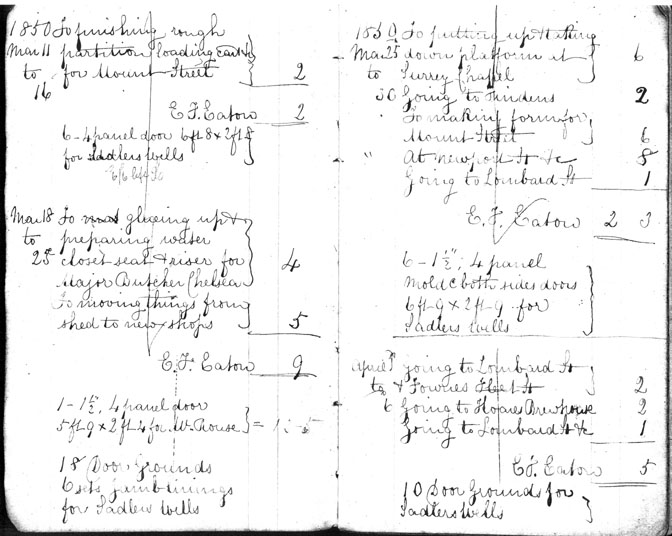 1850 To finishing rough
Mar 11 partition loading
to for Mount Street 2
16
E F. Eaton 2
6 - 4 panel door 6ft 8 x 2ft 8
for Sadlers Wells
Mar 18 To glueing up &
to preparing water
25 closet seat & riser for 4
Major Butcher Chelsea
To moving things from
shed to new shops 5
E. F. Eaton 9
1 - 1½", 4 panel door
5ft 9 x 2ft 4 for W. House =
18 Door Grounds
6 sets jamb linings
for Sadlers Wells
1850 To putting up & taking
Mar 25 down platform at 6
to Surrey Chapel
30 Going to 2
To making form for
Mount Street 6
" At Newport St &c 8
Going to Lombard St 1
E. F. Eaton 2 3
6 - 1½", 4 panel
Mold & both sides doors
6ft 9 x 2ft 9 for
Sadlers Wells
April 1 Going to Lombard St
to & Fownes St 2
6 Going to Hoares Brewhouse 2
Going to Lombard St &c 1
E F. Eaton 5
10 Door Grounds for
Sadlers Wells